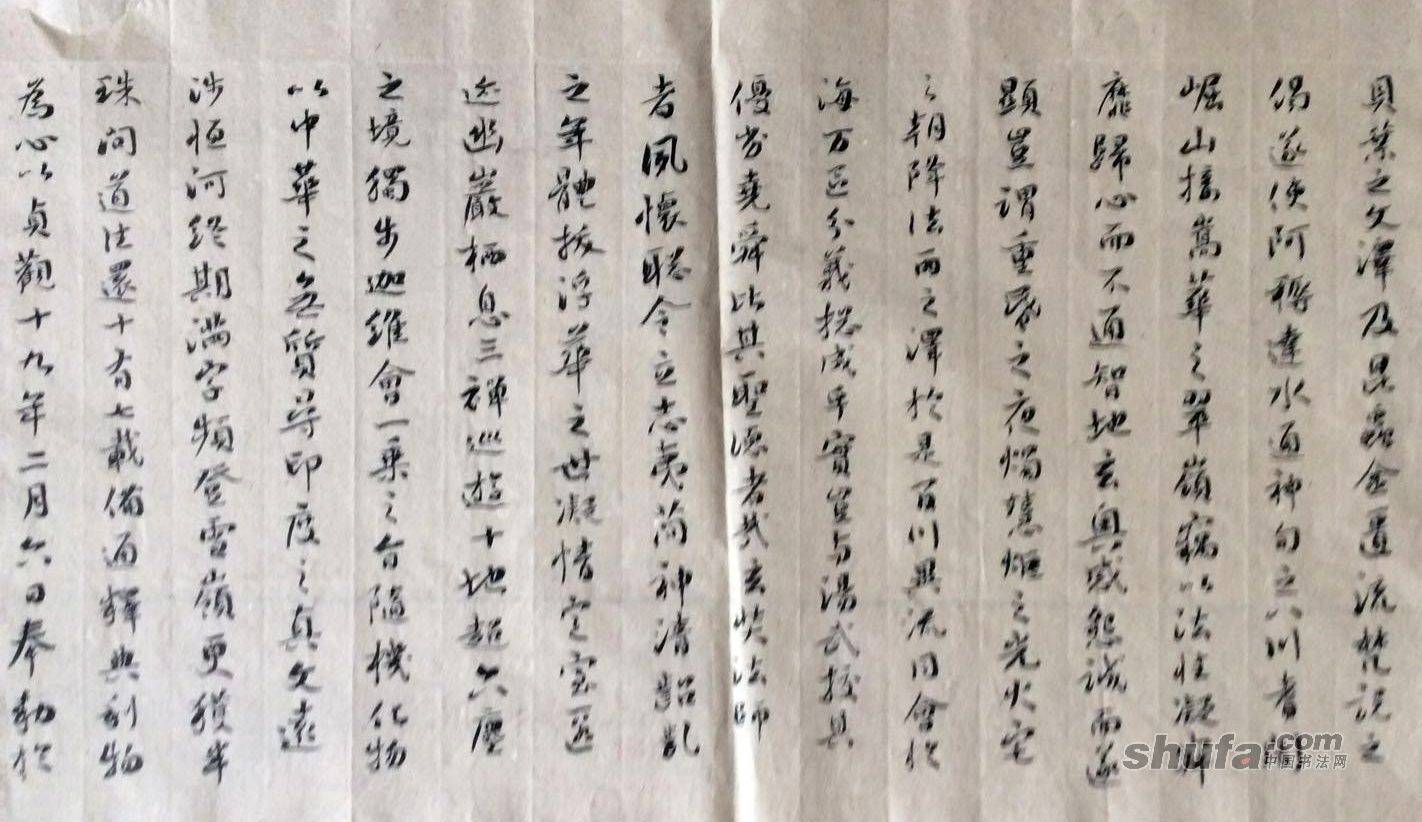 貝葉之文澤及昆蟲金匱流梵説之
偈遂使阿耨達水通神甸之八川耆闍
崛山接嵩華之翠嶺竊以法性凝寂
靡歸心而不通智地玄奥感懇誠而遂
顯豈謂重昏之夜燭慧炬之光火宅
之朝降法雨之澤於是百川異流同會於
海万區分義揔成乎實豈与湯武挍其
優劣堯舜比其聖德者哉玄奘法師
者夙懷聡令立志夷簡神清齠齔
之年體拔浮華之世凝情定室匿
迹幽巖栖息三禅巡遊十地超六塵
之境獨步迦維會一乘之旨随機化物
以中華之無質尋印度之真文遠
涉恒河終期滿字頻登雪嶺更獲半
珠問道往還十有七載備通釋典利物
為心以貞觀十九年二月六日奉勅於
shufa.com
中国书法网